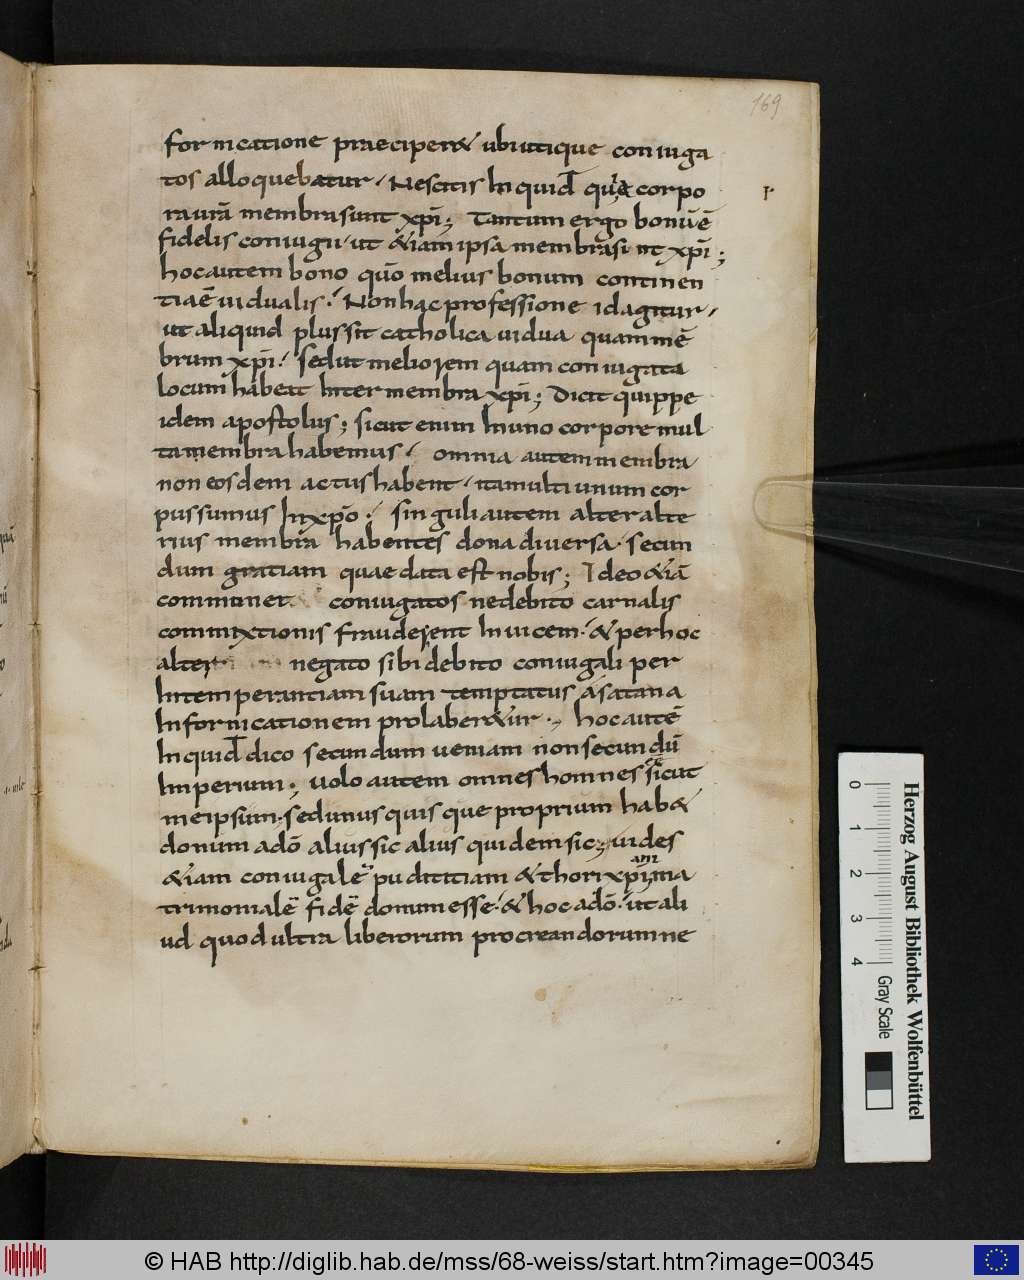 169
fornicatione praeciper& ubi utique coniuga
tos alloquebatur · Nescitis Inquid quia corpo
ra urā membra sunt xp̄i; Tantum ergo bonū ē
fidelis coniugii · ut &iam ipsa membra sint xp̄i;
hoc autem bono quō melius bonum continen
tiae uidualis · Non hac professione id agitur ·
ut aliquid plus sit catholica uidua quam mē
brum xp̄i · sed ut meliorem quam coniugata
locum habeat Inter membra xp̄i; Dicit quippe
idem apostolus; sicut enim In uno corpore mul
ta membra habemus · omnia autem membra
non eosdem actus habent · ita multi unum cor
pus sumus In xp̄o · singuli autem alter alte
rius membra habentes dona diuersa · secun
dum gratiam quae data est nobis; Ideo &iā
commoner coniugatos ne debito carnalis
commixtionis fraudarent Inuicem · & per hoc
alter negato sibi debito coniugali per
Intemperantiam suam temptatus a satana
In fornicationem prolaber&ur · hoc autē
Inquid dico secundum ueniam non secundū
Imperium; uolo autem omnes homines sicut
me ipsum; sed unusquisque proprium hab&
donum a dō alius sic alius quidem sic; uides
&iam coniugalē puditiam & thori xp̄i ma
trimonialē fidē donum esse · & hoc a dō · ut ali
ud quod ultra liberorum procreandorum ne
0 1 2 3 4
Gray Scale
Herzog August Bibliothek Wolfenbüttel
© HAB http://diglib.hab.de/mss/68-weiss/start.htm?image=00345